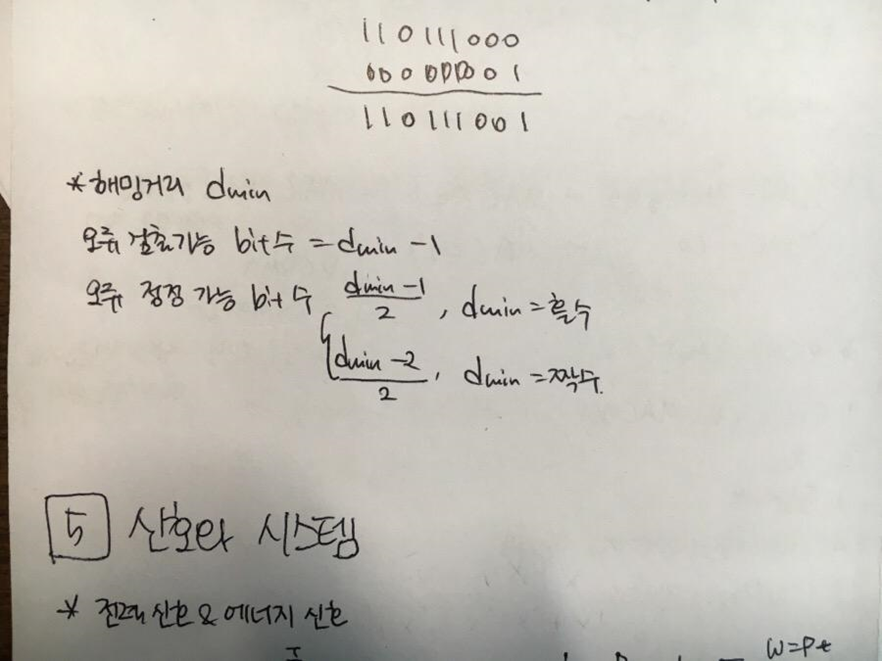 110111000
000000001
110111001
* 해밍거리 dmin
오류 검출가능 bit수 = dmin - 1
오류 정정 가능 bit수 { dmin - 1 / 2 , dmin = 홀수
dmin - 2 / 2 , dmin = 짝수.
5 신호와 시스템
* 전력신호 & 에너지 신호
W=Pt